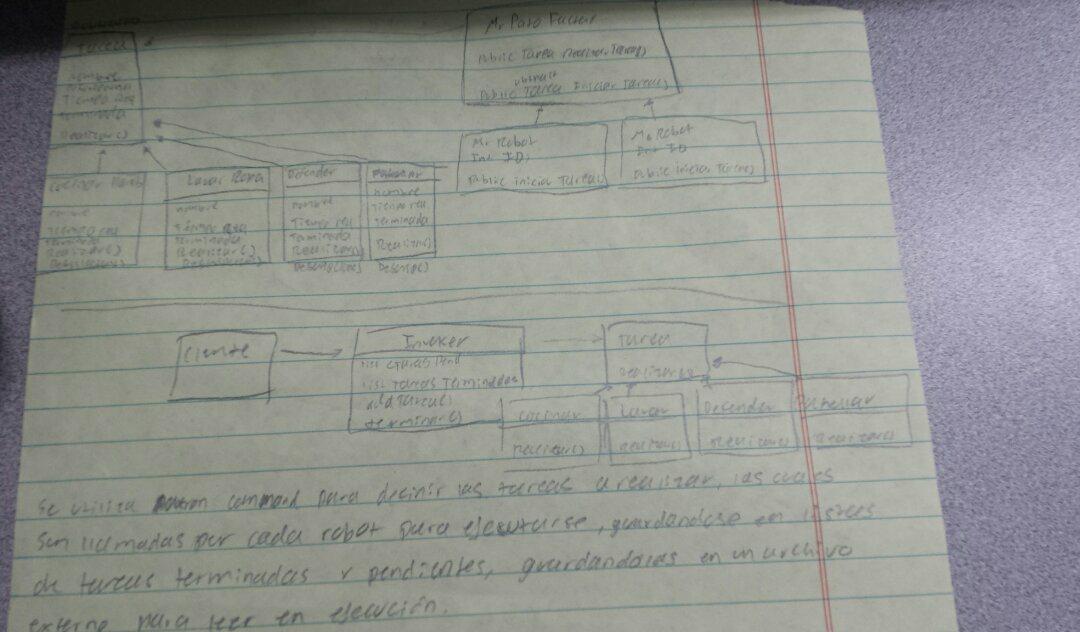 Tarea
nombre
Tiempo Req
Terminada
Realizar()
Mr Pato Factory
Public Tarea Realizar Tarea()
abstract
Public Tarea Iniciar Tarea()
Mr Robot
Int ID;
Public inicia Tarea()
Mr Robot
Int ID
Public inicia Tarea()
Cocinar
Terminada
Realizar()
Lavar Ropa
nombre
Tiempo Req
Terminada
Realizar()
Defender
nombre
Tiempo req
Terminada
Realizar()
nombre
Tiempo req
Terminada
Realizar()
Descrip()
Cliente
Invoker
list Tareas Pend
list Tareas Terminadas
add Tarea()
terminar()
Tarea
realizar()
Cocinar
realizar()
Lavar
realizar()
Defender
realizar()
realizar()
Se utiliza command para decinir las tareas a realizar, las cuales
son llamadas por cada robot para ejecutarse, guardandose en listas
de tareas terminadas y pendientes, guardandolas en un archivo
externo para leer en ejecución.